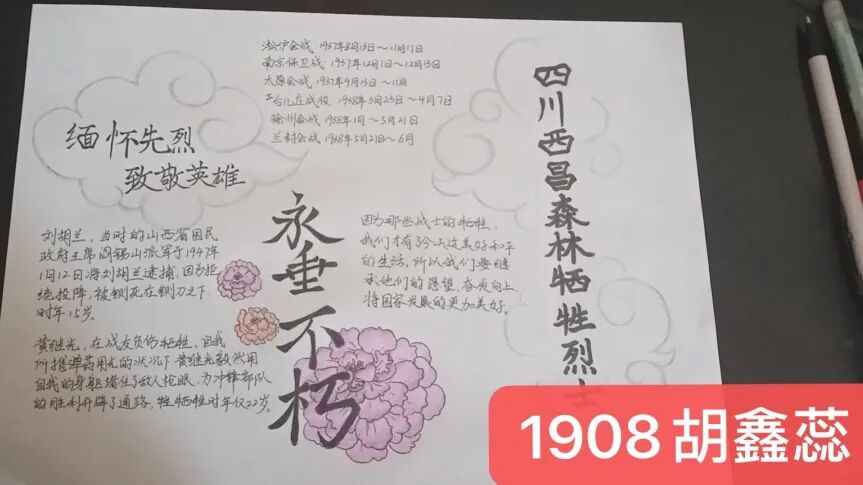 淞沪会战 1937年8月13日～11月11日
南京保卫战 1937年12月1日～12月13日
太原会战 1937年9月13日～11月
台儿庄战役 1938年3月23日～4月7日
徐州会战 1938年1月～5月21日
兰封会战 1938年5月21日～6月
缅怀先烈
致敬英雄
刘胡兰，当时的山西省国民
政府主席阎锡山派军于1947年
1月12日将刘胡兰逮捕，因为拒
绝投降，被铡死在铡刀之下
时年15岁。
黄继光，在战友负伤牺牲、自我
所携弹药用光的状况下黄继光毅然用
自我的身躯堵住了敌人枪眼，为冲锋部队
的胜利开辟了通路，牲牺牲时年仅22岁。
永垂不朽
因为那些战士的牺牲，
我们才有了今天这美好和平
的生活，所以我们要继
承他们的愿望，奋发向上，
将国家发展的更加美好。
四川西昌森林牺牲烈士
1908胡鑫蕊